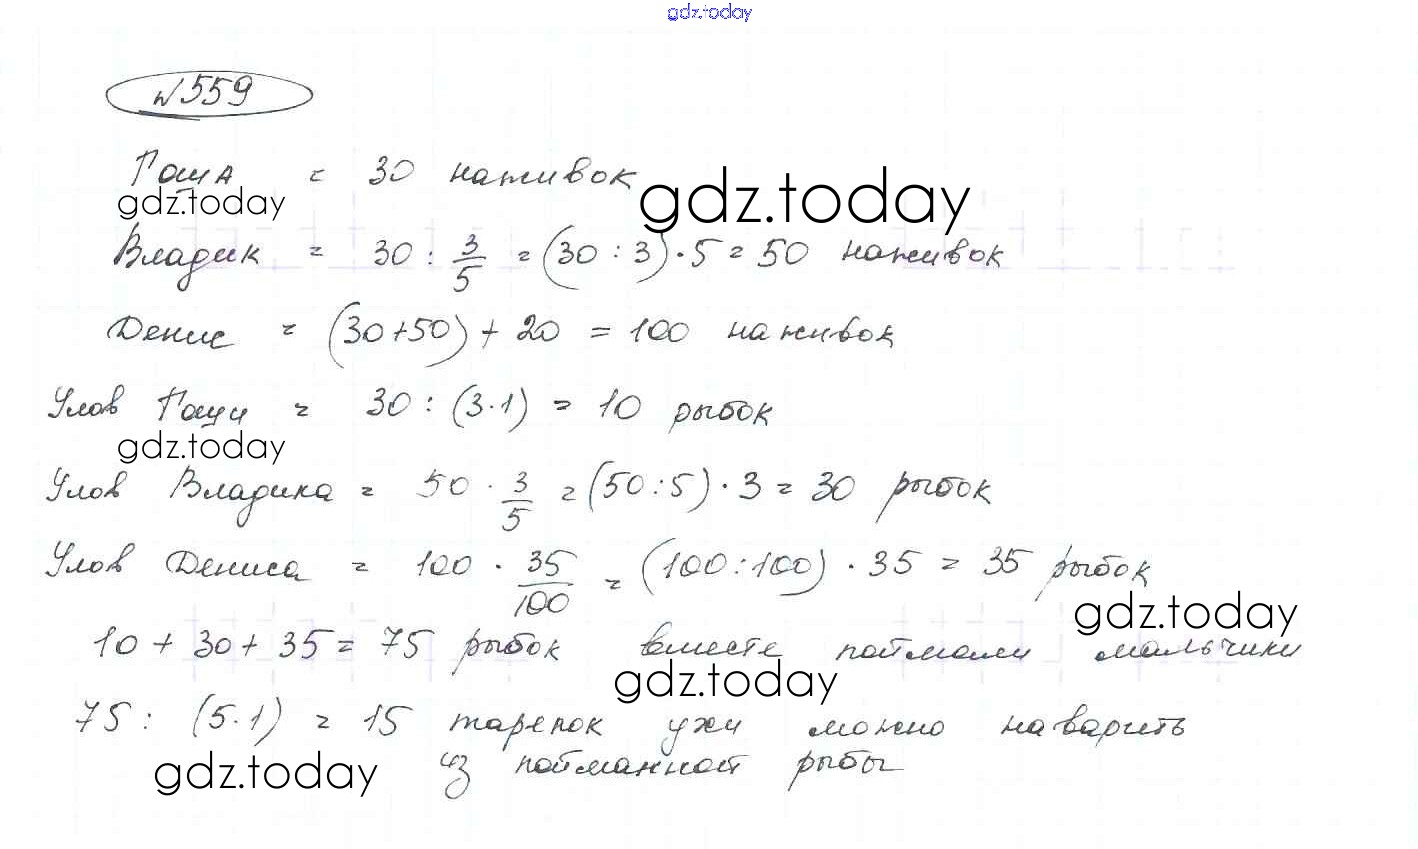 gdz.today
№559
Гоша = 30 наживок
gdz.today
gdz.today
Владик = 30 : 3/5 = (30 : 3) · 5 = 50 наживок
Денис = (30+50) + 20 = 100 наживок
Улов Гоши = 30 : (3·1) = 10 рыбок
gdz.today
Улов Владика = 50 · 3/5 = (50:5) · 3 = 30 рыбок
Улов Дениса = 100 · 35/100 = (100:100) · 35 = 35 рыбок
gdz.today
10 + 30 + 35 = 75 рыбок вместе поймали мальчики
gdz.today
75 : (5·1) = 15 тарелок ухи можно наварить
gdz.today
из пойманной рыбы